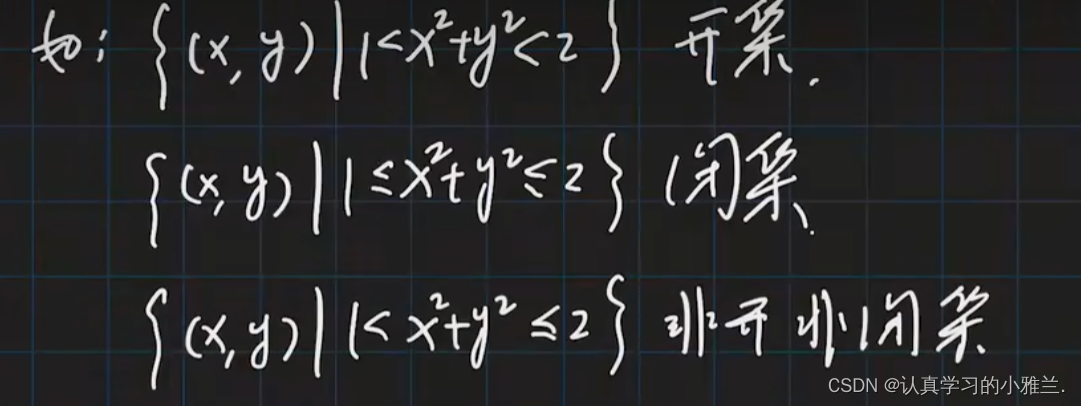 如: {(x,y)|1<x²+y²<2} 开集.
{(x,y)|1≤x²+y²≤2} 闭集.
{(x,y)|1<x²+y²≤2} 非开非闭集
CSDN @认真学习的小雅兰.